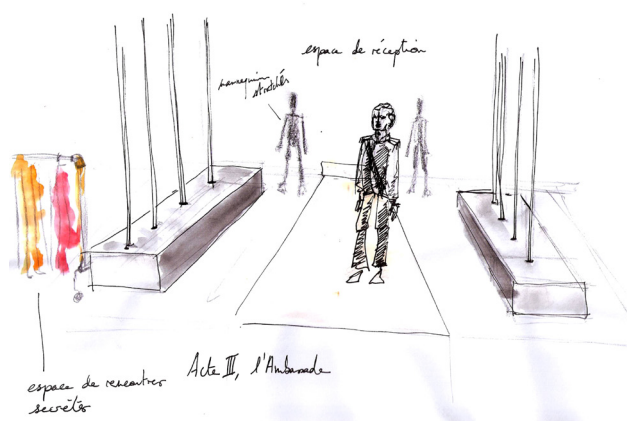 espace de réception
mannequin
stretchés
Acte III, l'Ambassade
espace de rencontres
secrètes